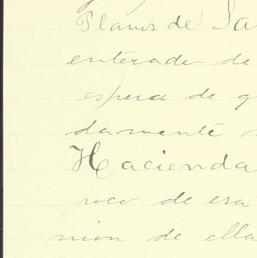 Planos de Sa
enterado de
espera de q
damente
Hacienda
poco de esa
nion de ella